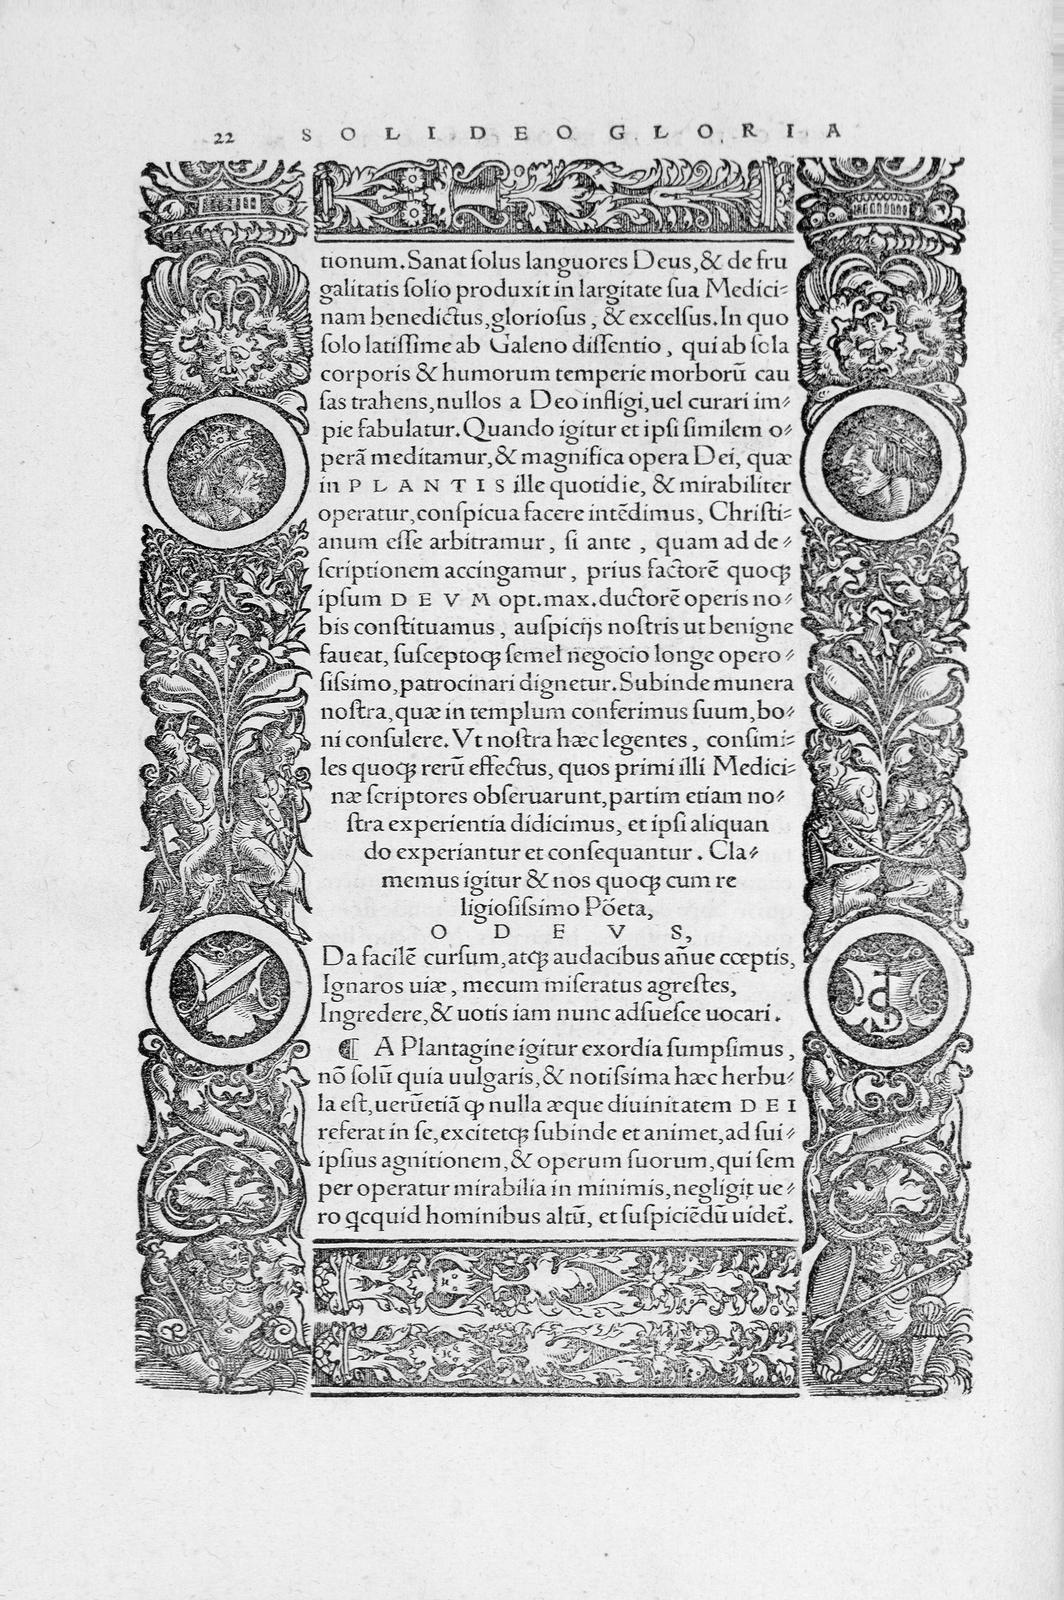 22 S O L I D E O G L O R I A
tionum. Sanat ſolus languores Deus, & de fru
galitatis ſolio produxit in largitate ſua Medici⸗
nam benedictus, glorioſus, & excelſus. In quo
ſolo latiſſime ab Galeno diſſentio, qui ab ſola
corporis & humorum temperie morborū cau
ſas trahens, nullos a Deo infligi, uel curari im⸗
pie fabulatur. Quando igitur et ipſi ſimilem o⸗
perā meditamur, & magnifica opera Dei, quæ
in P L A N T I S ille quotidie, & mirabiliter
operatur, conſpicua facere intēdimus, Chriſti⸗
anum eſſe arbitramur, ſi ante, quam ad de⸗
ſcriptionem accingamur, prius factorē quoqꝫ
ipſum D E V M opt. max. ductorē operis no⸗
bis conſtituamus, auſpicijs noſtris ut benigne
faueat, ſuſceptoqꝫ ſemel negocio longe opero⸗
ſiſsimo, patrocinari dignetur. Subinde munera
noſtra, quæ in templum conferimus ſuum, bo⸗
ni conſulere. Vt noſtra hæc legentes, conſimi⸗
les quoqꝫ rerū effectus, quos primi illi Medici⸗
næ ſcriptores obſeruarunt, partim etiam no⸗
ſtra experientia didicimus, et ipſi aliquan
do experiantur et conſequantur. Cla⸗
memus igitur & nos quoqꝫ cum re
ligioſiſsimo Pöeta,
O D E V S,
Da facilē curſum, atqꝫ audacibus añue cœptis,
Ignaros uiæ, mecum miſeratus agreſtes,
Ingredere, & uotis iam nunc adſueſce uocari.
¶ A Plantagine igitur exordia ſumpſimus,
nō ſolū quia uulgaris, & notiſsima hæc herbu⸗
la eſt, uerūetiā ꝙ nulla æque diuinitatem D E I
referat in ſe, excitetqꝫ ſubinde et animet, ad ſui⸗
ipſius agnitionem, & operum ſuorum, qui ſem
per operatur mirabilia in minimis, negligit ue⸗
ro qcquid hominibus altū, et ſuſpiciēdū uidet̄.